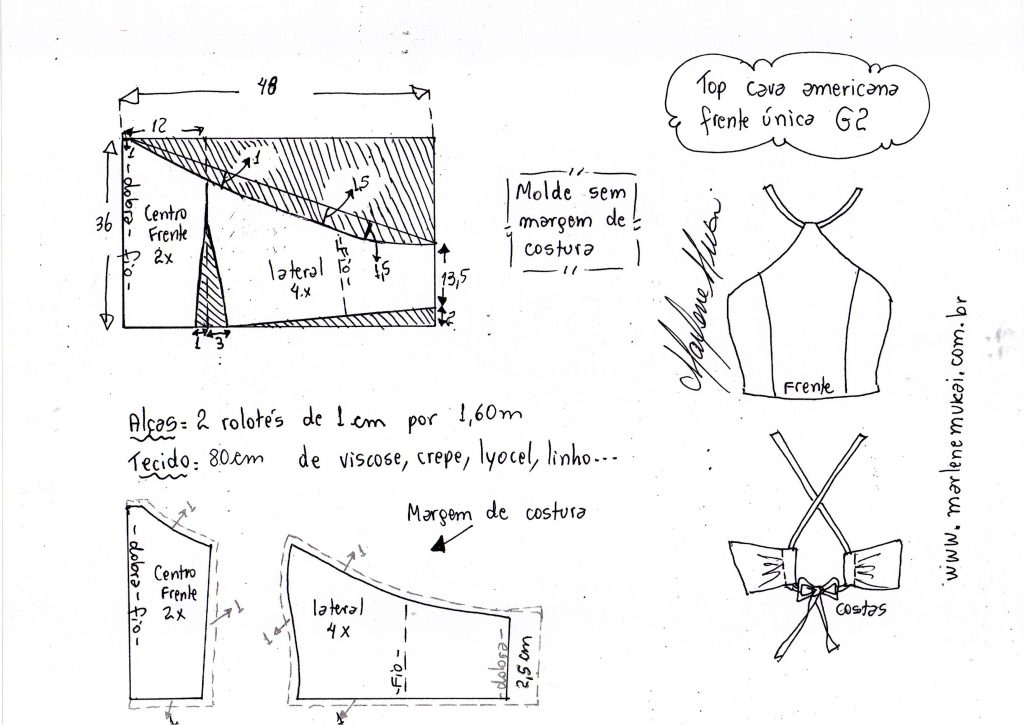 48
12
1
1
1,5
1,5
36
-dobra-fio-
Centro
Frente
2x
lateral
4.x
-Fio-
13,5
2
1
3
Molde sem
margem de
costura
Top cava americana
frente única G2
Marlene Mukai
Frente
Alças= 2 rolotés de 1cm por 1,60m
Tecido: 80cm de viscose, crepe, lyocel, linho...
Margem de costura
1
-dobra-fio-
Centro
Frente
2x
1
1
1
1
lateral
4x
-Fio-
-dobra-
2,5cm
1
costas
www.marlenemukai.com.br